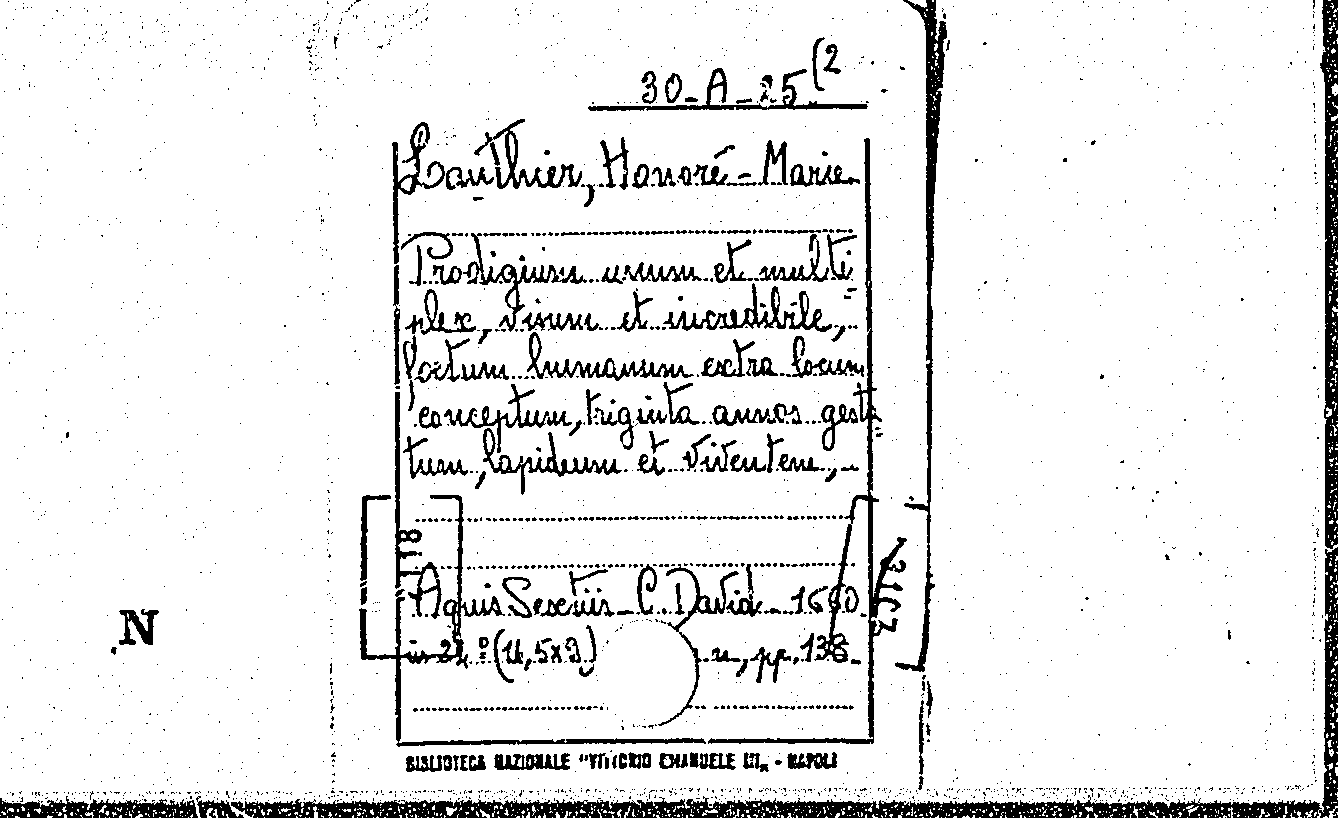 30-A-25(2
Lauthier, Honoré-Marie
Prodigium unum et multi=
plex, visum et incredibile,-
foetum humanum extra locum
conceptum, triginta annos gesta=
tum, lapideum et viventem,-
Aquis Sextiis - C. David - 1660
in 24º (11,5x9) n., pp. 138
N
BIBLIOTECA NAZIONALE "VITTORIO EMANUELE III" - NAPOLI